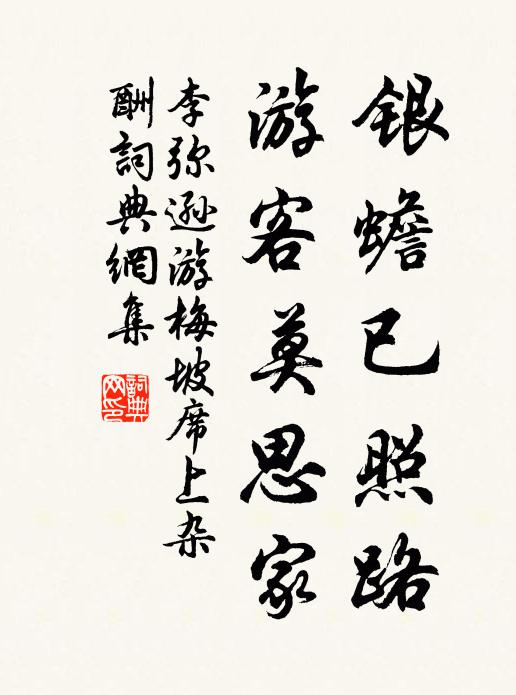 银蟾已照路
游客莫思家
李弥逊游梅坡席上杂
酬词典網集
詞典
网印